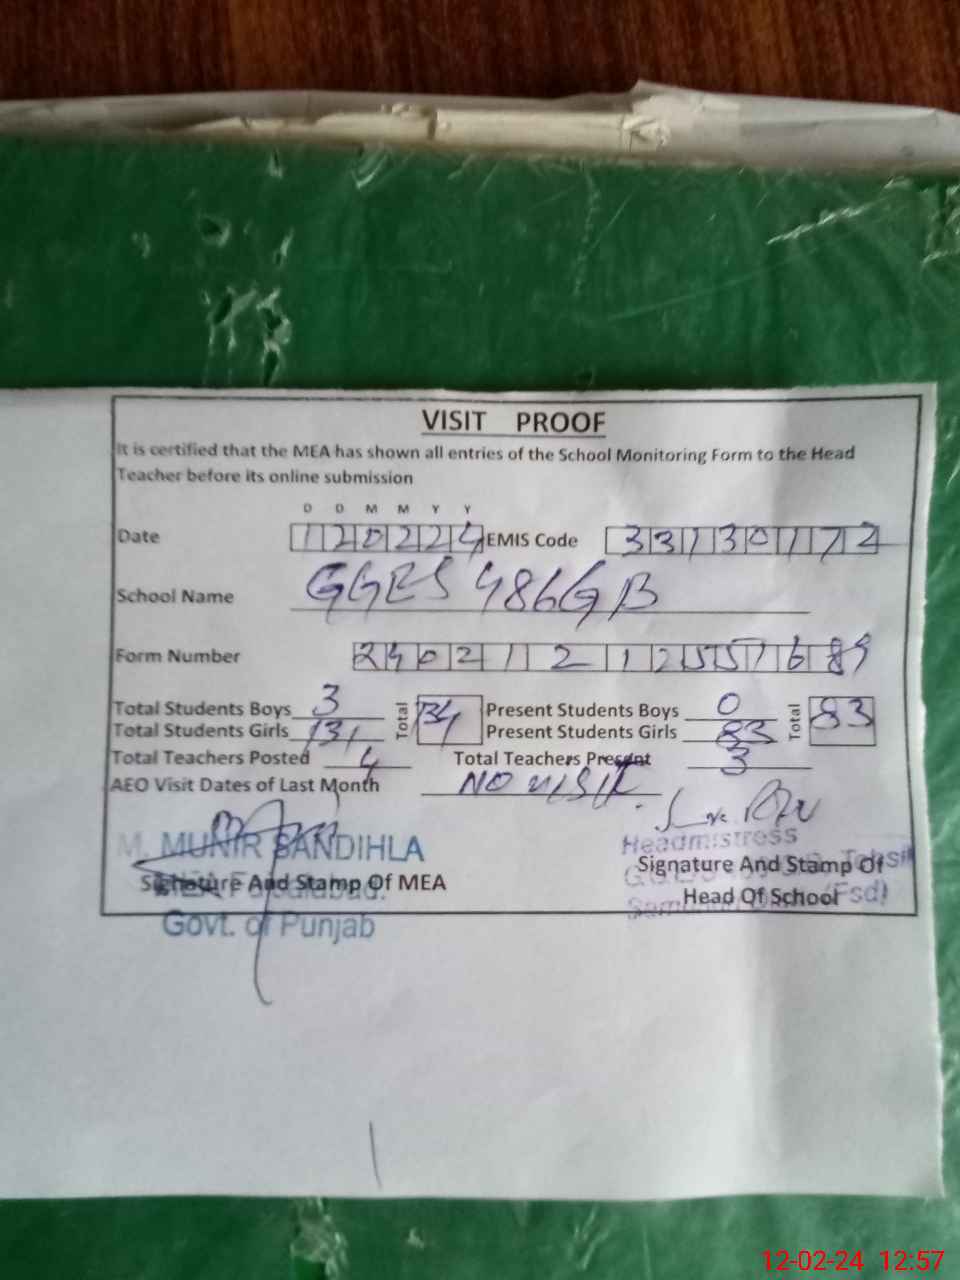 VISIT PROOF
It is certified that the MEA has shown all entries of the School Monitoring Form to the Head
Teacher before its online submission
D D M M Y Y
Date 120224 EMIS Code 33130172
School Name GGES 486GB
Form Number 24021212551689
Total Students Boys 3 Total 134 Present Students Boys 0 Total 83
Total Students Girls 131 Present Students Girls 83
Total Teachers Posted 4 Total Teachers Present 3
AEO Visit Dates of Last Month NO VISIT.
M. MUNIR SANDIHLA Headmistress
Signature And Stamp Of MEA Signature And Stamp Of Tehsil
Faisalabad. Head Of School (Fsd)
Govt. of Punjab
12-02-24 12:57